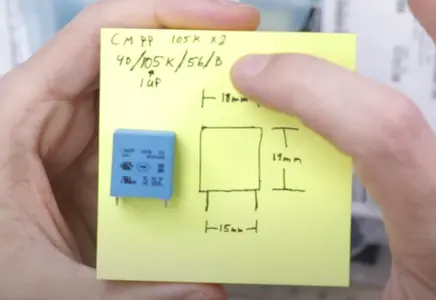 CMPP 105K X2
40/105K/56/B
1uF
18mm
19mm
15mm